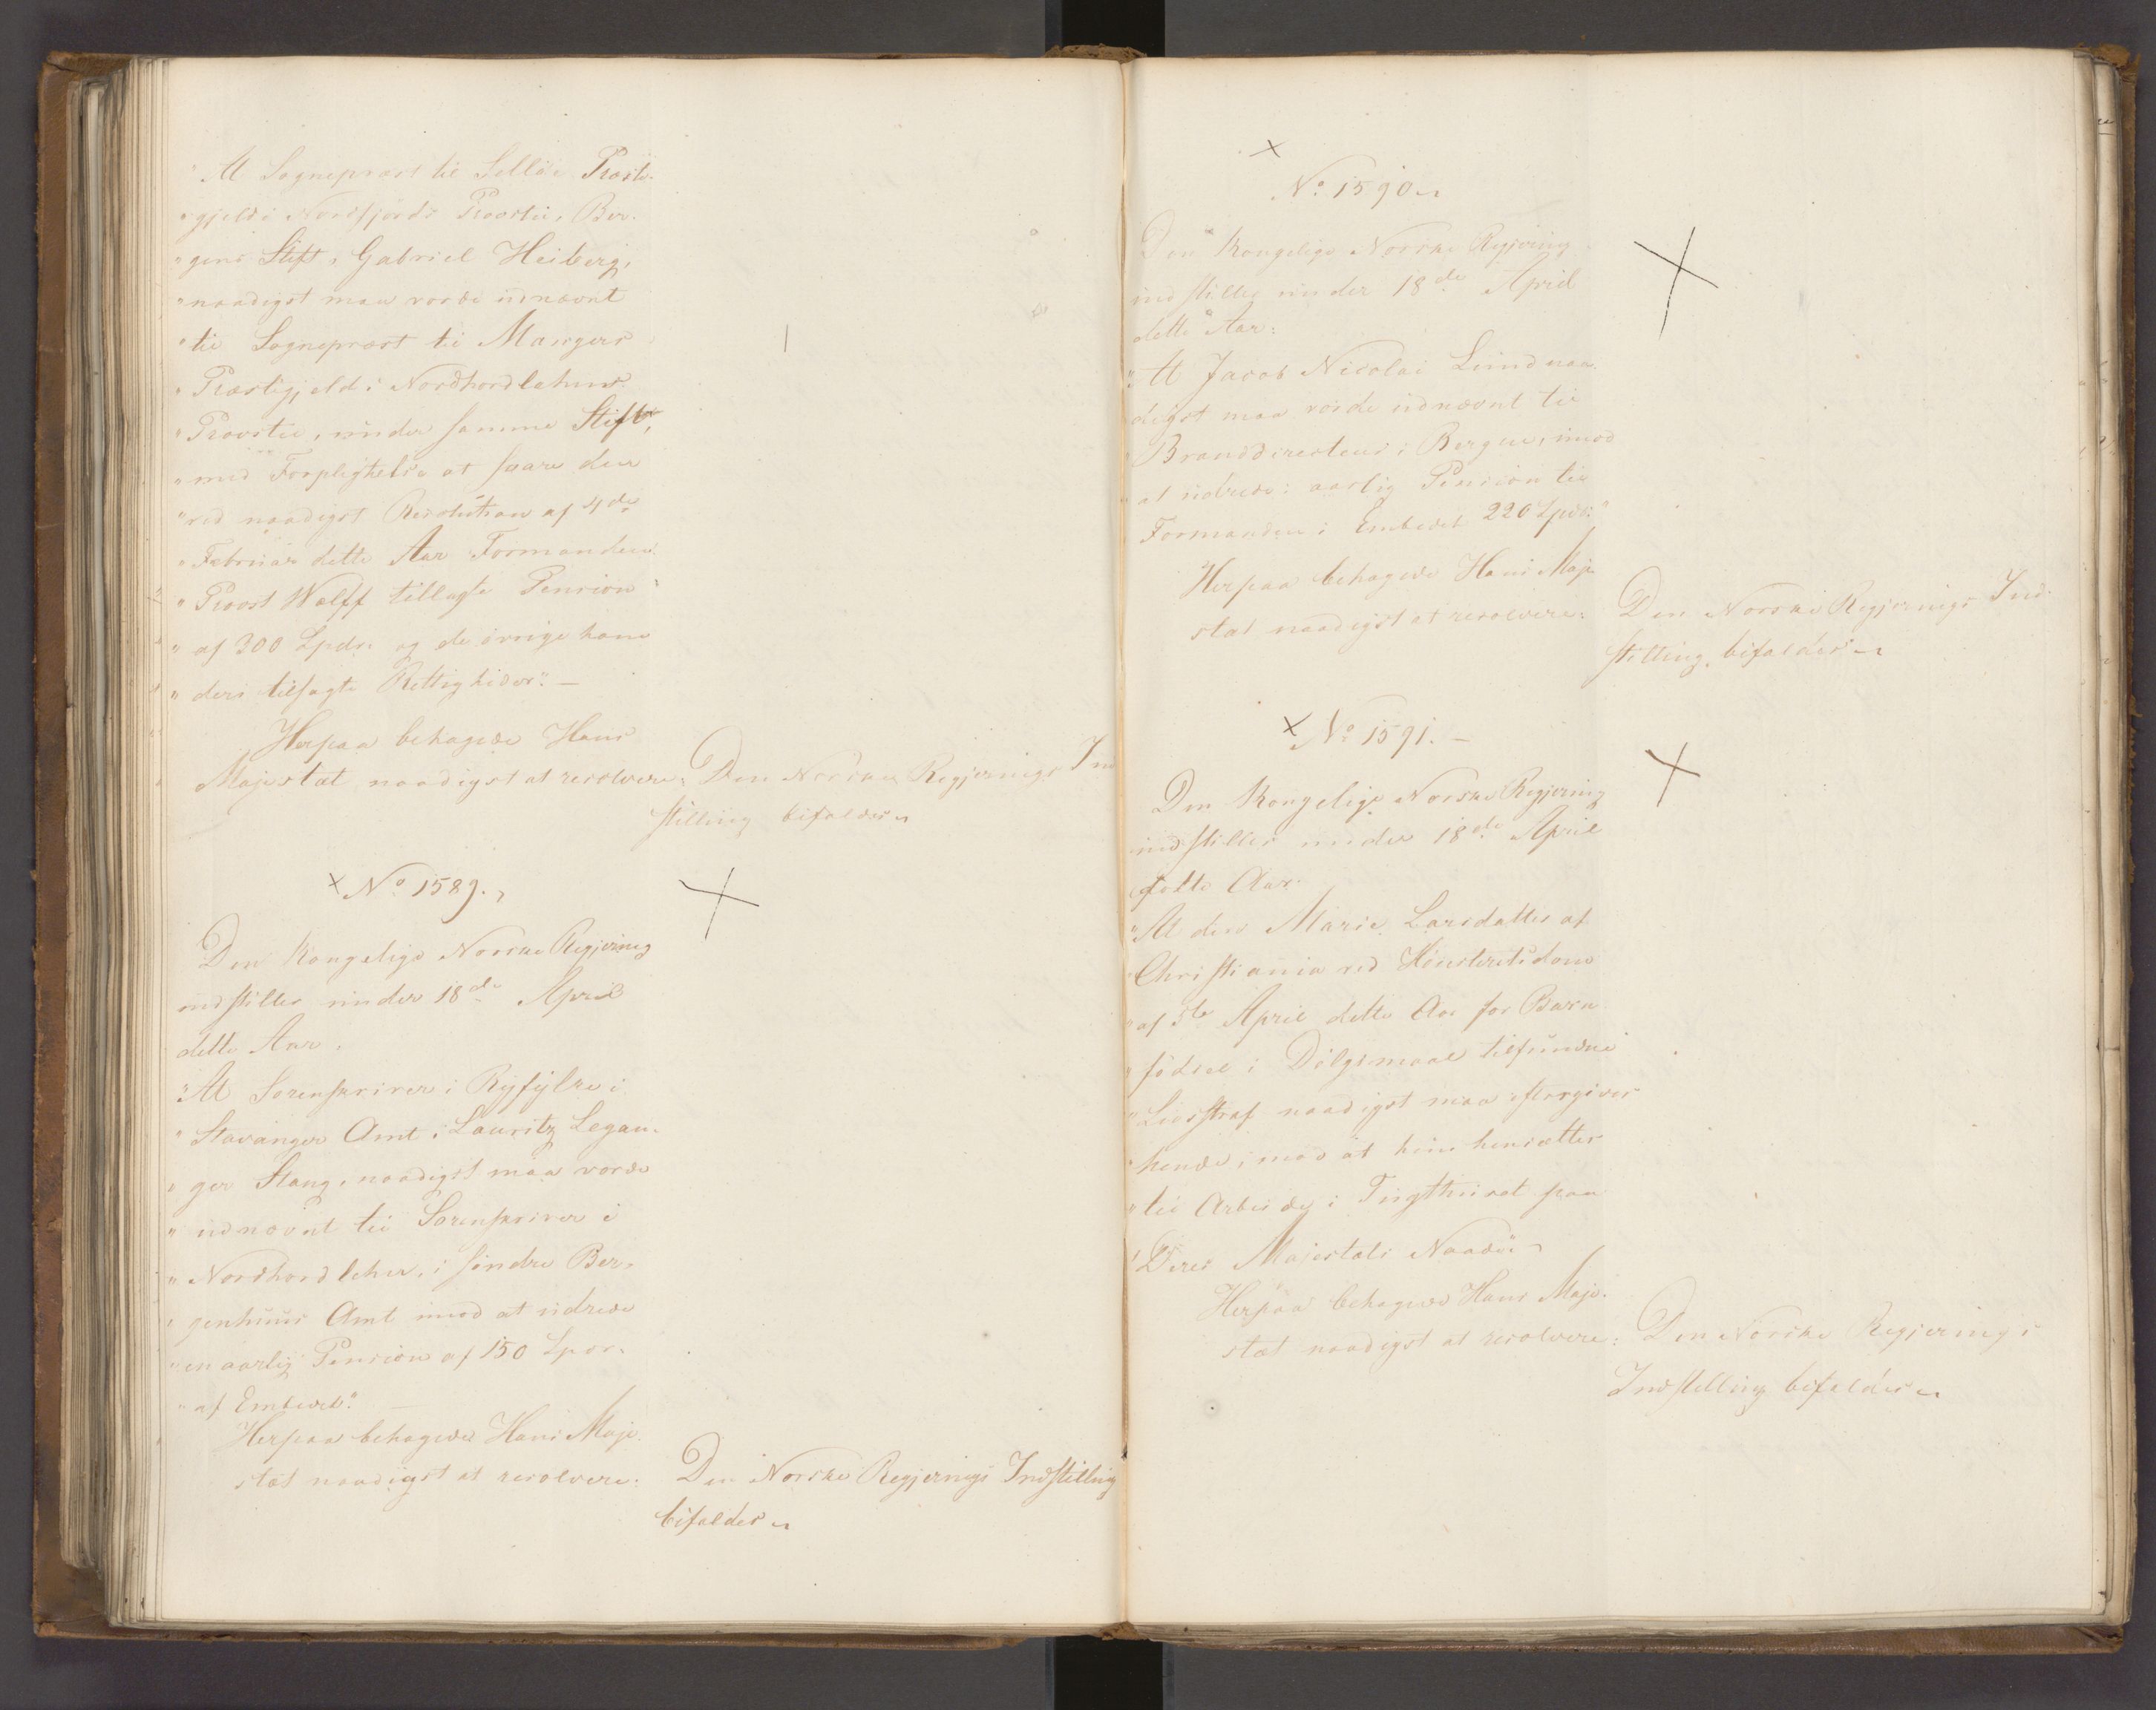 "At Sognepræst til Selløe Præste-
"gjeld i Nordfjords Provstie, Ber-
"gens Stift, Gabriel Heiberg,
"naadigst maa vorde udnævnt
"til Sognepræst til Mangers
"Præstegjeld i Nordhordlehns
"Provstie, under samme Stift,
"med Forpligtelse at svare den
"ved naadigst Resolution af 4de
"Februar dette Aar Formanden
"Provst Wolff tillagte Pension
"af 300 Spdr. og de øvrige ham
"ders tilsagte Rettigheder". —
Herpaa behagede Hans
Majestæt naadigst at resolvere: Den Norske Regjerings Ind
stilling bifaldes
× No 1589.
Den Kongelige Norske Regjering
indstiller under 18de April
dette Aar.
"At Sorenskriver i Ryfylke i
"Stavanger Amt, Lauritz Legan-
"ger Stang, naadigst maa vorde
"udnævnt til Sorenskriver i
"Nordhordlehn, i søndre Ber-
"genhuus Amt imod at udrede
"en aarlig Pension af 150 Spdr.
"af Embedet".
Herpaa behagede Hans Maje-
stæt naadigst at resolvere: Den Norske Regjerings Indstilling
bifaldes
×
No 1590
Den Kongelige Norske Regjering
indstiller under 18de April
dette Aar:
"At Jacob Nicolai Lund naa-
digst maa vorde udnævnt til
"Branddirecteur i Bergen, imod
"at udrede i aarlig Pension til
Formanden i Embedet 220 Spdr."
Herpaa behagede Hans Maje-
stæt naadigst at resolvere: Den Norske Regjerings Ind-
stilling bifaldes
× No 1591. —
Den Kongelige Norske Regjering
indstiller under 18de April
dette Aar.
"At den Marie Larsdatter af
"Christiania ved Høiesteretsdom
"af 5te April dette Aar for Barn-
"fødsel i Dølgsmaal tilfundne
"Livsstraf naadigst maa eftergives
"hende, imod at hun hensættes
"til Arbeide i Tugthuset paa
"Deres Majestæts Naade"
Herpaa behagede Hans Maje-
stæt naadigst at resolvere: Den Norske Regjerings
Indstilling bifaldes